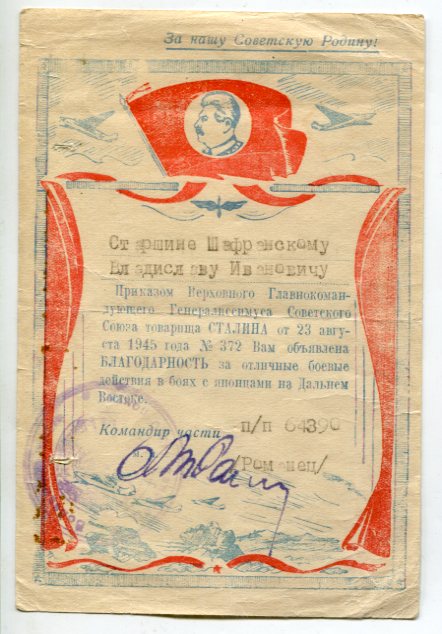 За нашу Советскую Родину!
Старшине Шафранскому
Владиславу Ивановичу
Приказом Верховного Главнокоман-
дующего Генералиссимуса Советского
Союза товарища СТАЛИНА от 23 авгу-
ста 1945 года № 372 Вам объявлена
БЛАГОДАРНОСТЬ за отличные боевые
действия в боях с японцами на Дальнем
Востоке.
Командир части п/п 64390
/Романец/